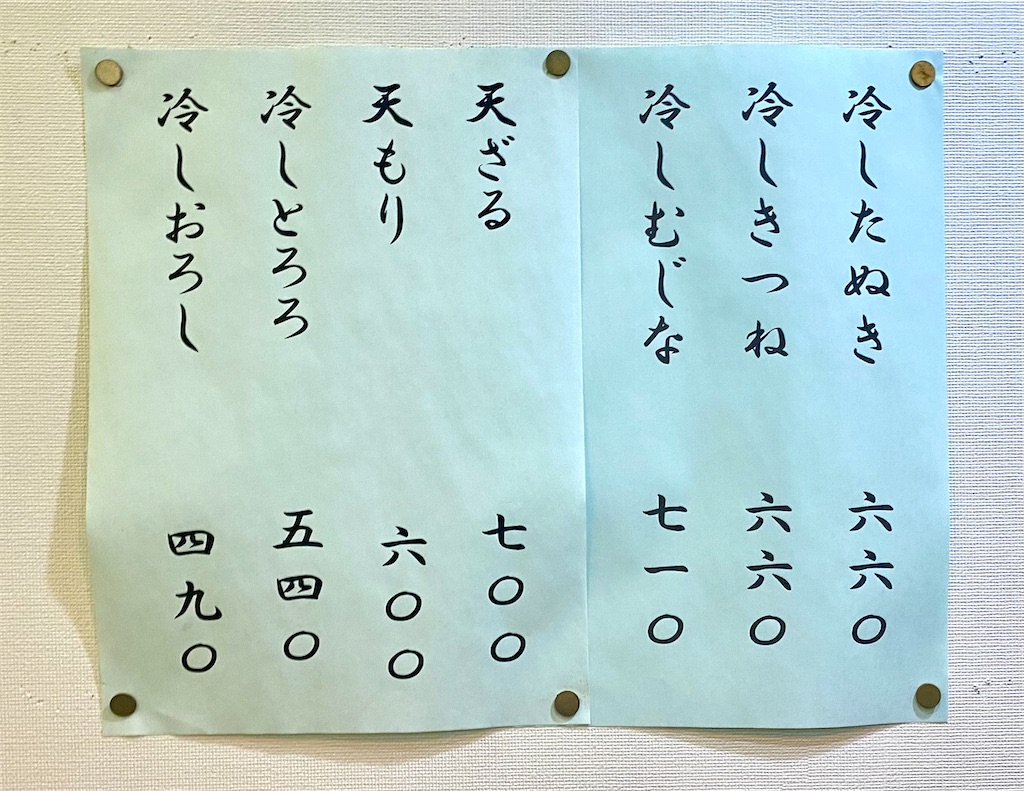 冷したぬき 六六〇
冷しきつね 六六〇
冷しむじな 七一〇
天ざる 七〇〇
天もり 六〇〇
冷しとろろ 五四〇
冷しおろし 四九〇